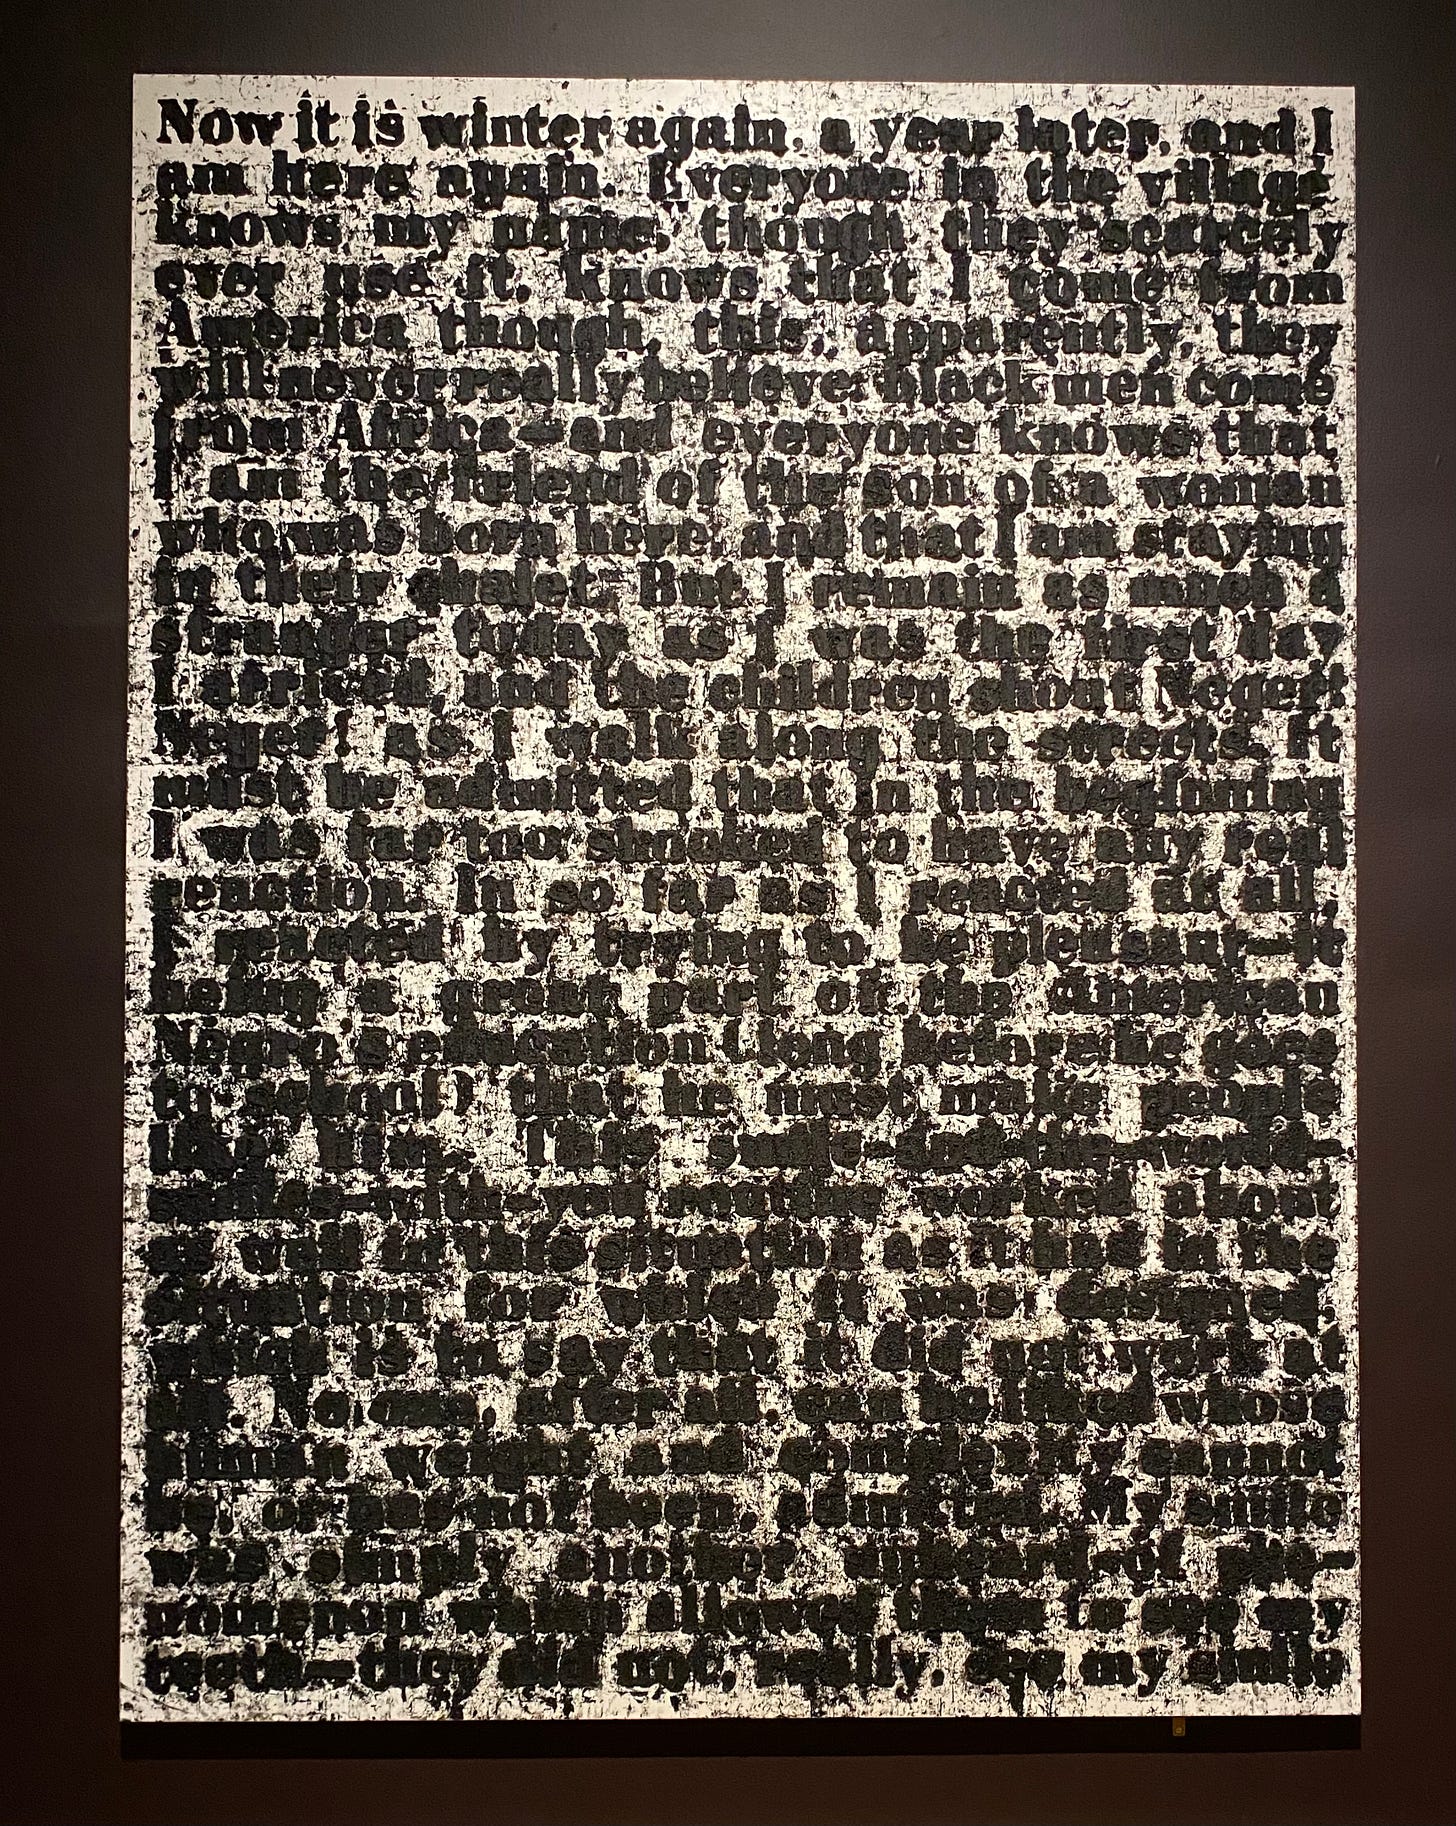 Now it is winter again, a year later, and I
am here again. Everyone in the village
knows my name, though they scarcely
ever use it, knows that I come from
America though, this, apparently, they
will never really believe: black men come
from Africa—and everyone knows that
I am the friend of the son of a woman
who was born here, and that I am staying
in their chalet. But I remain as much a
stranger today as I was the first day
I arrived, and the children shout Neger!
Neger! as I walk along the streets. It
must be admitted that in the beginning
I was far too shocked to have any real
reaction. In so far as I reacted at all,
I reacted by trying to be pleasant—it
being a great part of the American
Negro's education (long before he goes
to school) that he must make people
like him. This smile-and-the-world-
smiles-with-you routine worked about
as well in this situation as it had in the
situation for which it was designed,
which is to say that it did not work at
all. No one, after all, can be liked whose
human weight and complexity cannot
be, or has not been, admitted. My smile
was simply another unheard-of phe-
nomenon which allowed them to see my
teeth—they did not, really, see my smile